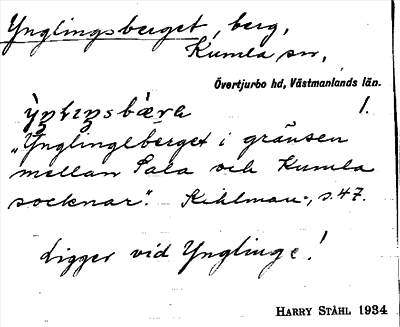 Ynglingsberget, berg,
Kumla sn,
Övertjurbo hd, Västmanlands län.
1.
„Ynglingeberget i gränsen
mellan Sala och Kumla
socknar". Kihlman, s. 47.
Ligger vid Ynglinge!
HARRY STÅHL 1934